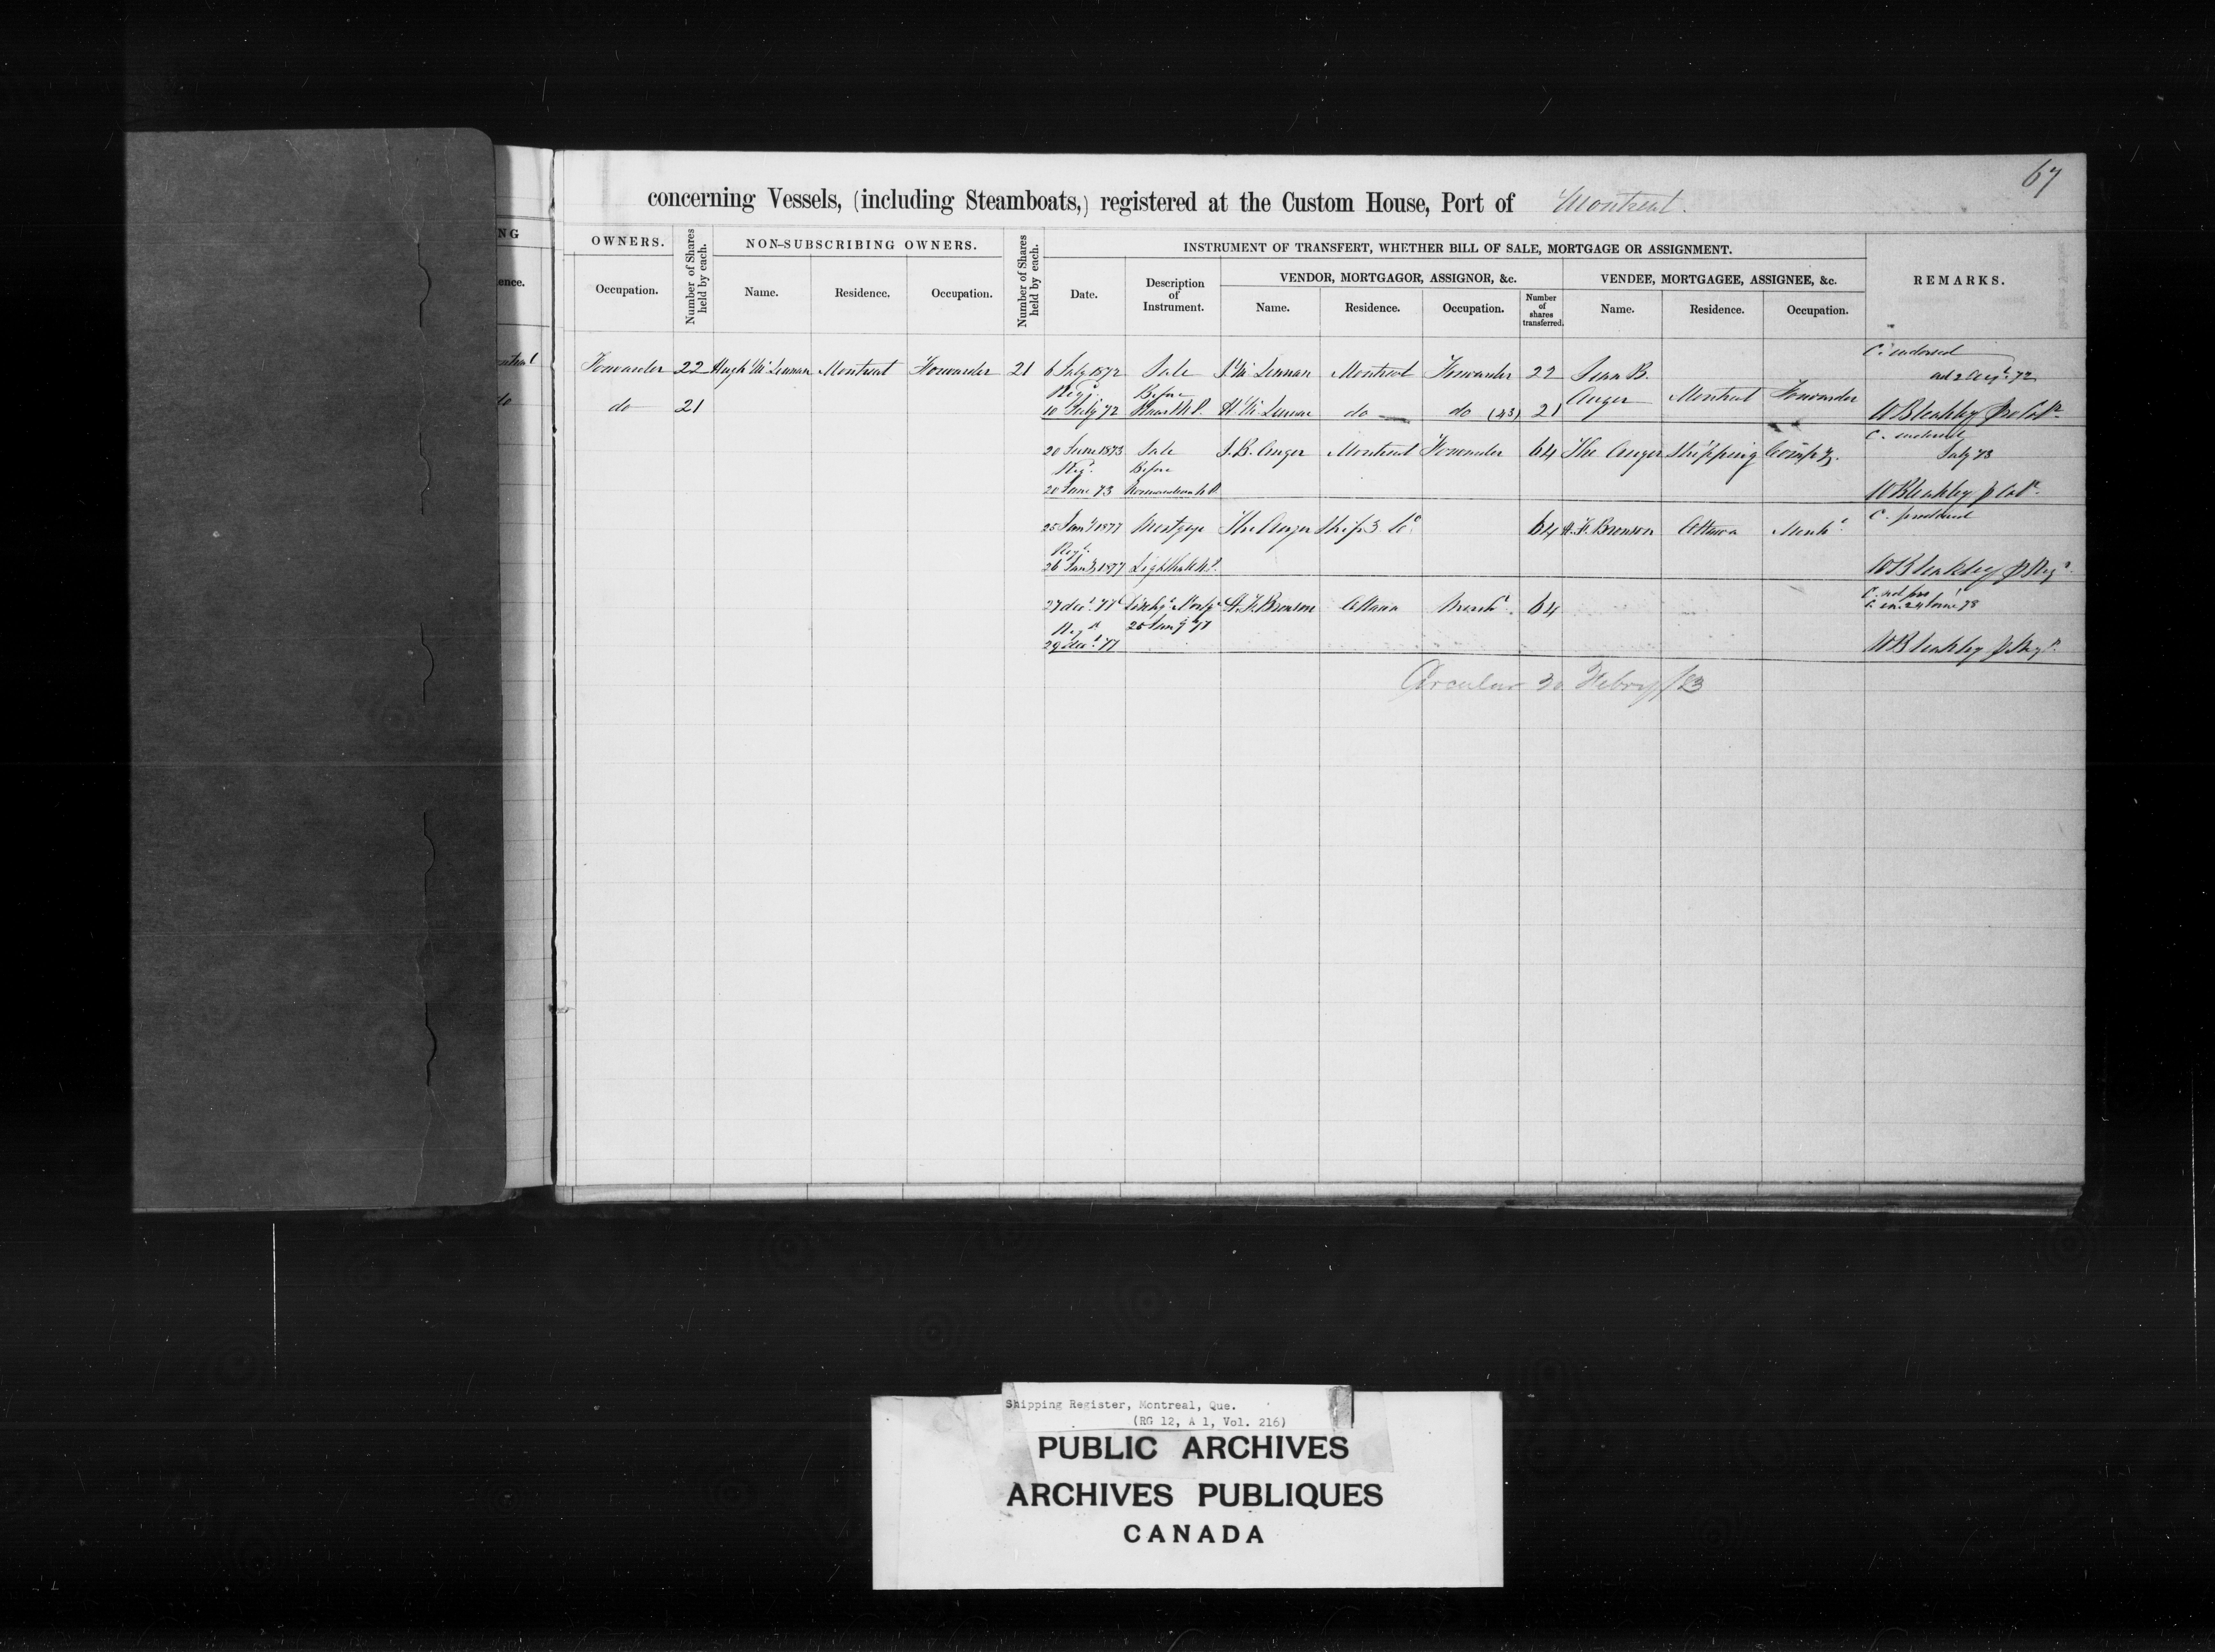 67
concerning Vessels, (including Steamboats,) registered at the Custom House, Port of Montreal.
NG
OWNERS.
Number of Shares held by each.
NON-SUBSCRIBING OWNERS.
Number of Shares held by each.
INSTRUMENT OF TRANSFERT, WHETHER BILL OF SALE, MORTGAGE OR ASSIGNMENT.
REMARKS.
ence.
Occupation.
Name.
Residence.
Occupation.
Date.
Description of Instrument.
VENDOR, MORTGAGOR, ASSIGNOR, &c.
VENDEE, MORTGAGEE, ASSIGNEE, &c.
Name.
Residence.
Occupation.
Number of shares transferred.
Name.
Residence.
Occupation.
C. endorsed
Forwarder 22 Hugh McLennan Montreal Forwarder 21 6 July 1872 Sale J. McLennan Montreal Forwarder 22 Jean B.
and 2 Augt. 72
Regd. Before Auger Montreal Forwarder
do 21 10 July 72 H. McLennan do do (43) 21
W Bleakley
C. endorsed
20 June 1873 Sale J. B. Auger Montreal Forwarder 64 The Auger Shipping Compy.
July 73
Regd. Before
20 June 73
W Bleakley
25 Jany 1877 Mortgage The Auger Shipg Co. 64 H. F. Bronson Ottawa Mercht.
C. produced
Regd.
26 Jany 1877 Lighthall N.P.
W Bleakley p Regr.
27 decr. 77 Dischg. Mortge H. F. Bronson Ottawa Mercht. 64
C. not pro
Regd. 25 Jany 77
29 decr. 77
W Bleakley p Regr.
Circular 30 Febry/83
Shipping Register, Montreal, Que.
(RG 12, A 1, Vol. 216)
PUBLIC ARCHIVES
ARCHIVES PUBLIQUES
CANADA